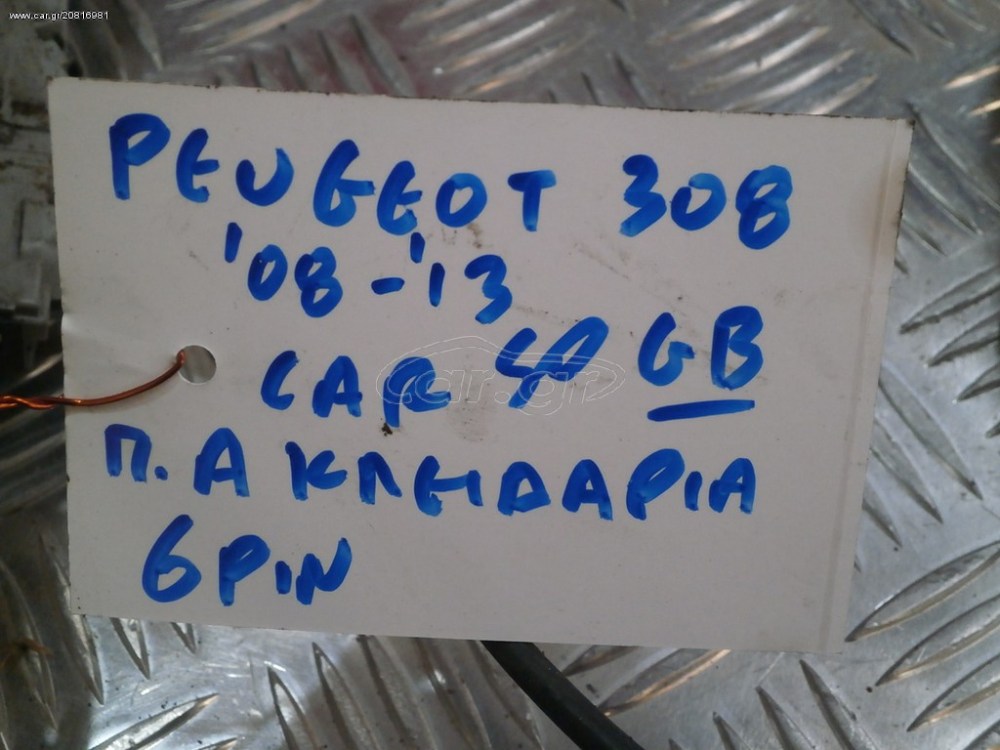 www.car.gr/20816981
PEUGEOT 308
'08-'13
CAR GB
Π.Α ΚΛΕΙΔΑΡΙΑ
6PIN
car.gr